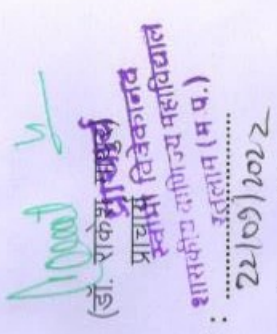 (डॉ. राकेश
प्राचार्य
प्राचार्य
स्वामी विवेकानन्द
शासकीय वाणिज्य महाविद्यालय
रतलाम (म.प्र.)
: ....................
22/09/2022